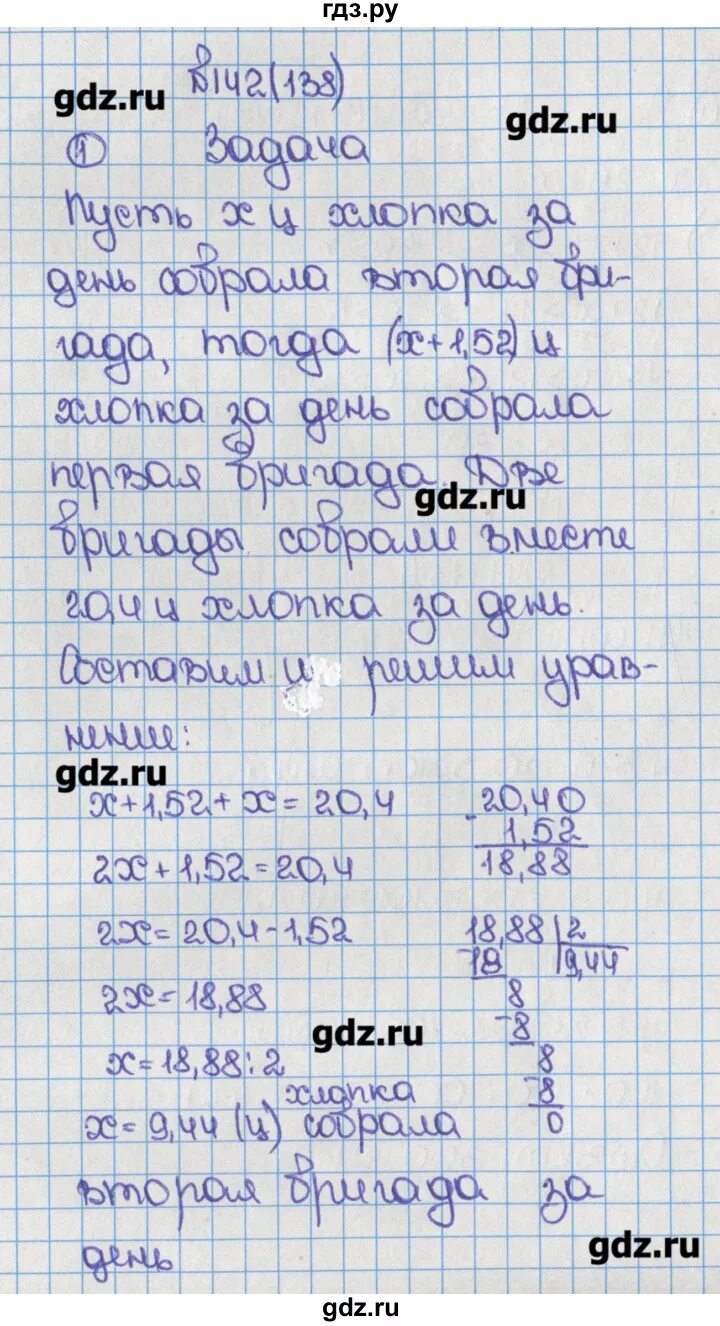 гдз.ру
№142(138)
gdz.ru
gdz.ru
① Задача
Пусть х ц хлопка за
день собрала вторая бри-
гада, тогда (х+1,52) ц
хлопка за день собрала
первая бригада. Две
gdz.ru
бригады собрали вместе
20,4 ц хлопка за день.
Составим и решим урав-
нение:
gdz.ru
х+1,52+х=20,4
2х+1,52=20,4
2х=20,4-1,52
2х=18,88
х=18,88:2
хлопка
х=9,44 (ц) собрала
вторая бригада за
день
20,40
- 1,52
18,88
18,88 | 2
- 18 | 9,44
8
- 8
8
- 8
0
gdz.ru
gdz.ru
gdz.ru